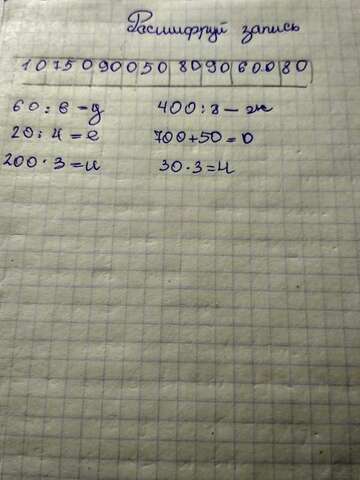 Расшифруй запись
10 750 90 050 80 90 600 80
60 : 6 = д 400 : 8 = ж
20 : 4 = е 700 + 50 = о
200 · 3 = и 30 · 3 = н